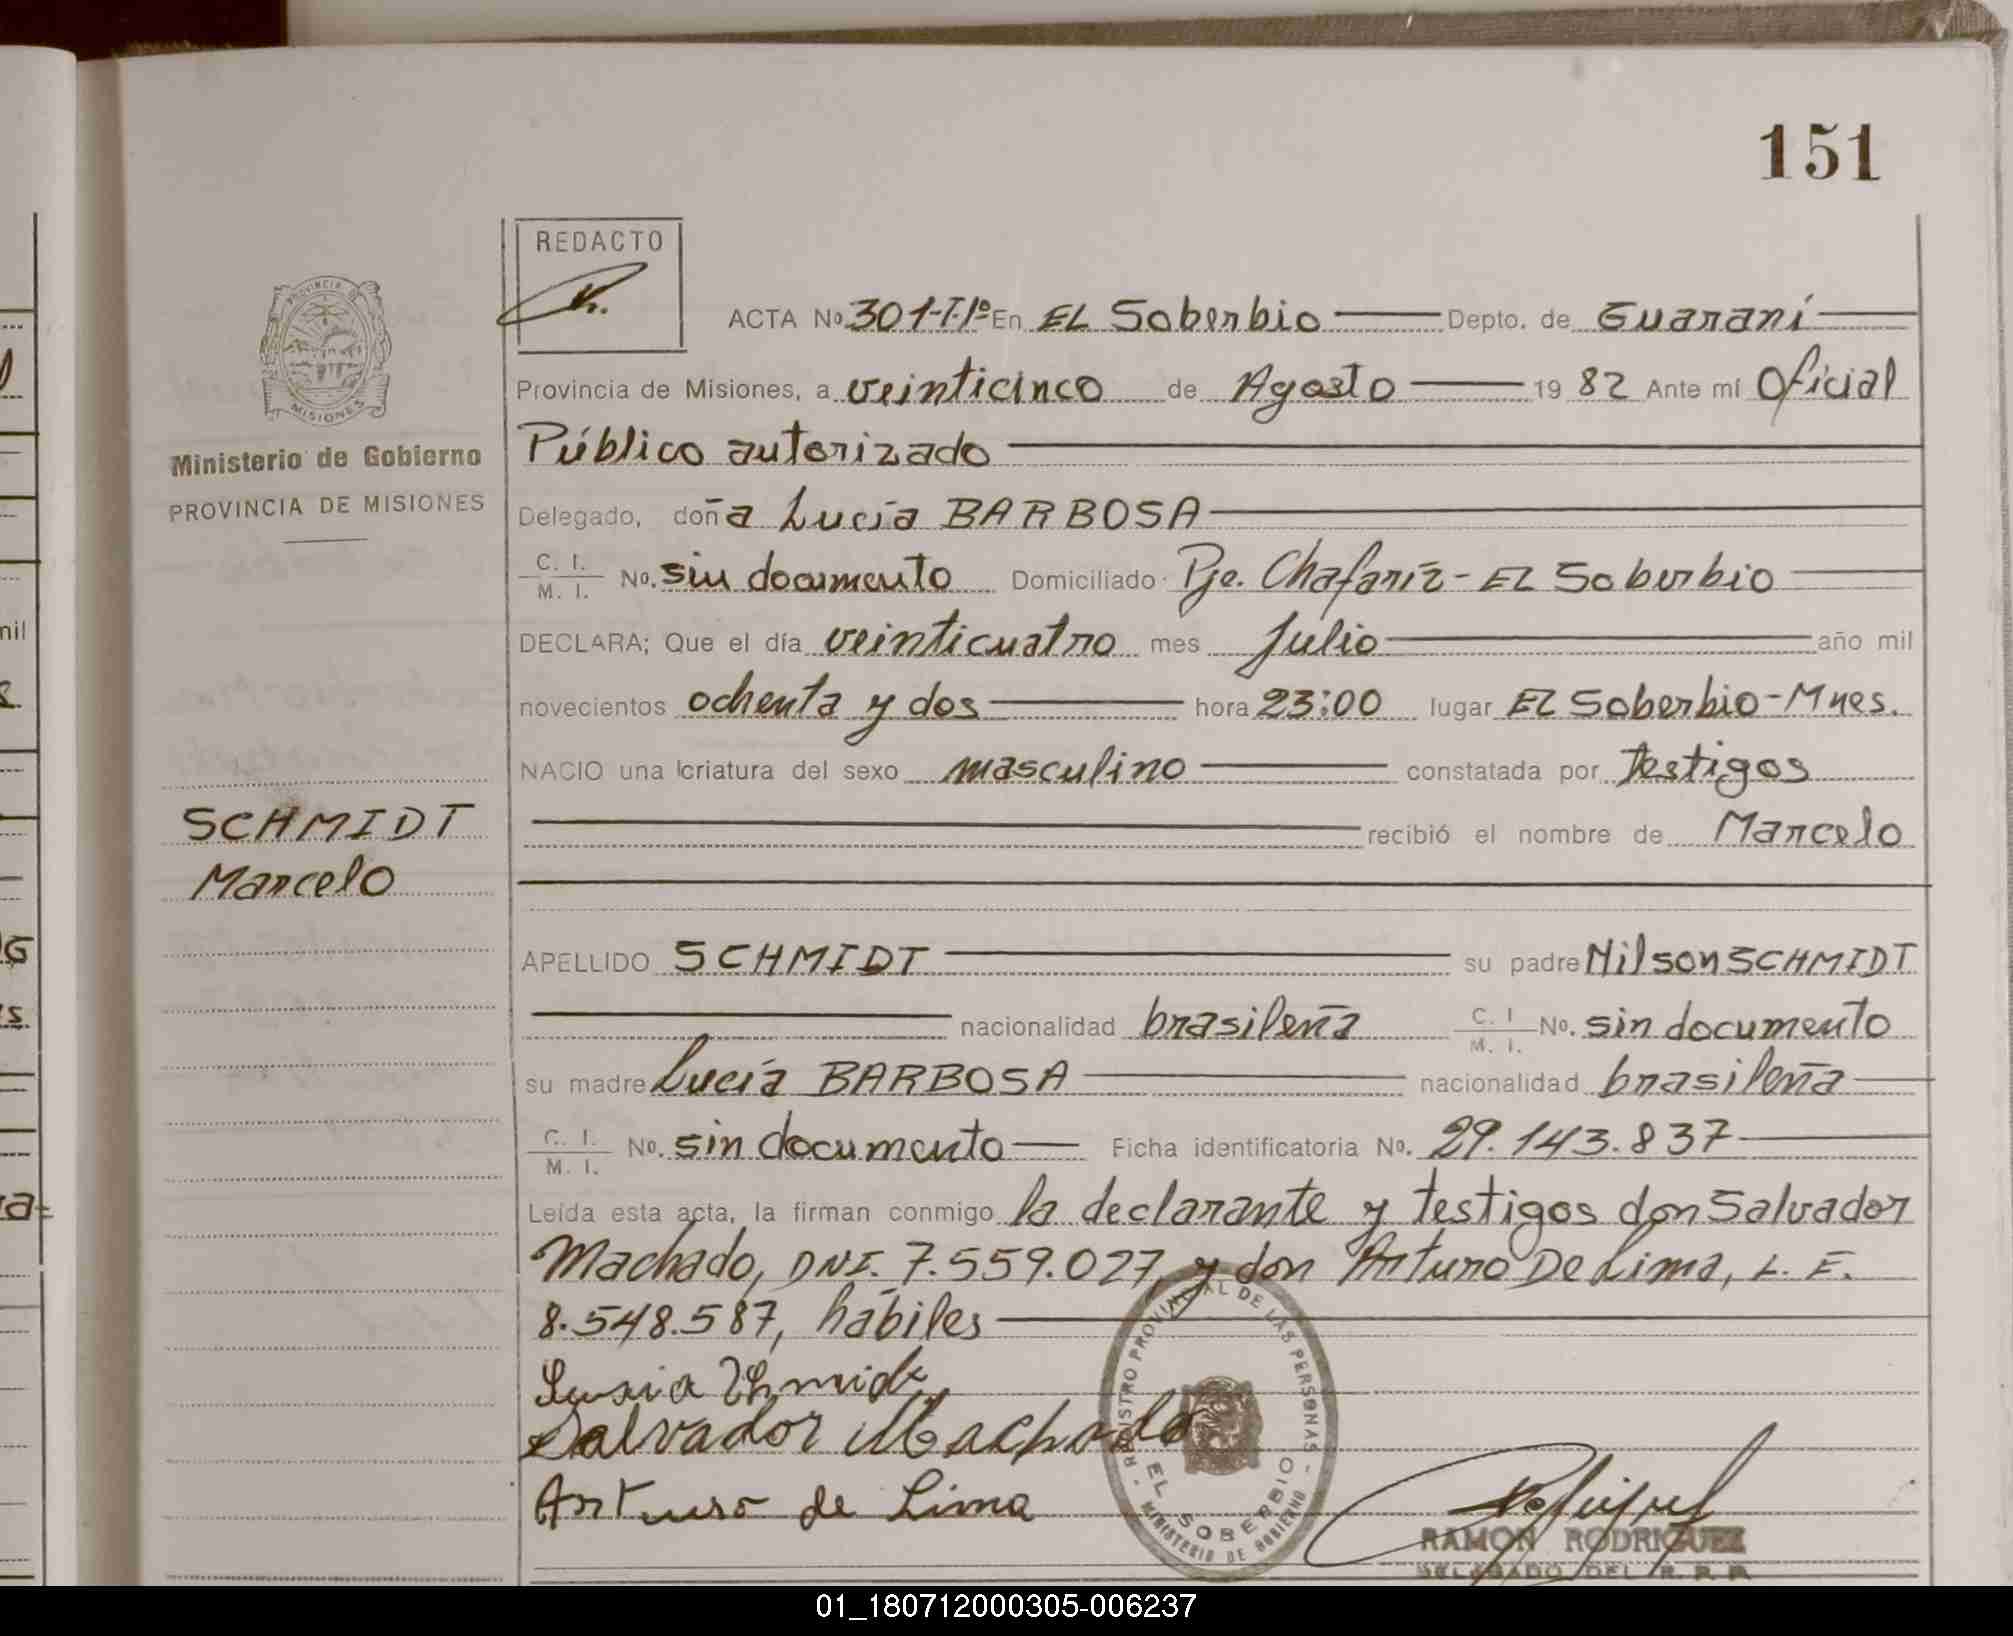 151
REDACTO
ACTA No 301-Tº1º En EL Soberbio Depto. de Guaraní
Provincia de Misiones, a veinticinco de Agosto 19 82 Ante mí Oficial
Público autorizado
Delegado, doña Lucía BARBOSA
C. I.
M. I. No. sin documento Domiciliado Pje. Chafariz - EL Soberbio
DECLARA; Que el día veinticuatro mes Julio año mil
novecientos ochenta y dos hora 23:00 lugar EL Soberbio-Mnes.
NACIO una criatura del sexo masculino constatada por testigos
recibió el nombre de Marcelo
APELLIDO SCHMIDT su padre Nilson SCHMIDT
nacionalidad brasileña C. I.
M. I. No. sin documento
su madre Lucía BARBOSA nacionalidad brasileña
C. I.
M. I. No. sin documento Ficha identificatoria No. 29.143.837
Leída esta acta, la firman conmigo la declarante y testigos don Salvador
Machado, DNI. 7.559.027, y don Arturo De Lima, L. E.
8.548.587, hábiles
Salvador Machado
Arturo de Lima
REGISTRO PROVINCIAL DE LAS PERSONAS
EL SOBERBIO
MINISTERIO DE GOBIERNO
RAMON RODRIGUEZ
DELEGADO DEL R. P. P.
PROVINCIA DE
MISIONES
Ministerio de Gobierno
PROVINCIA DE MISIONES
SCHMIDT
Marcelo
01_180712000305-006237